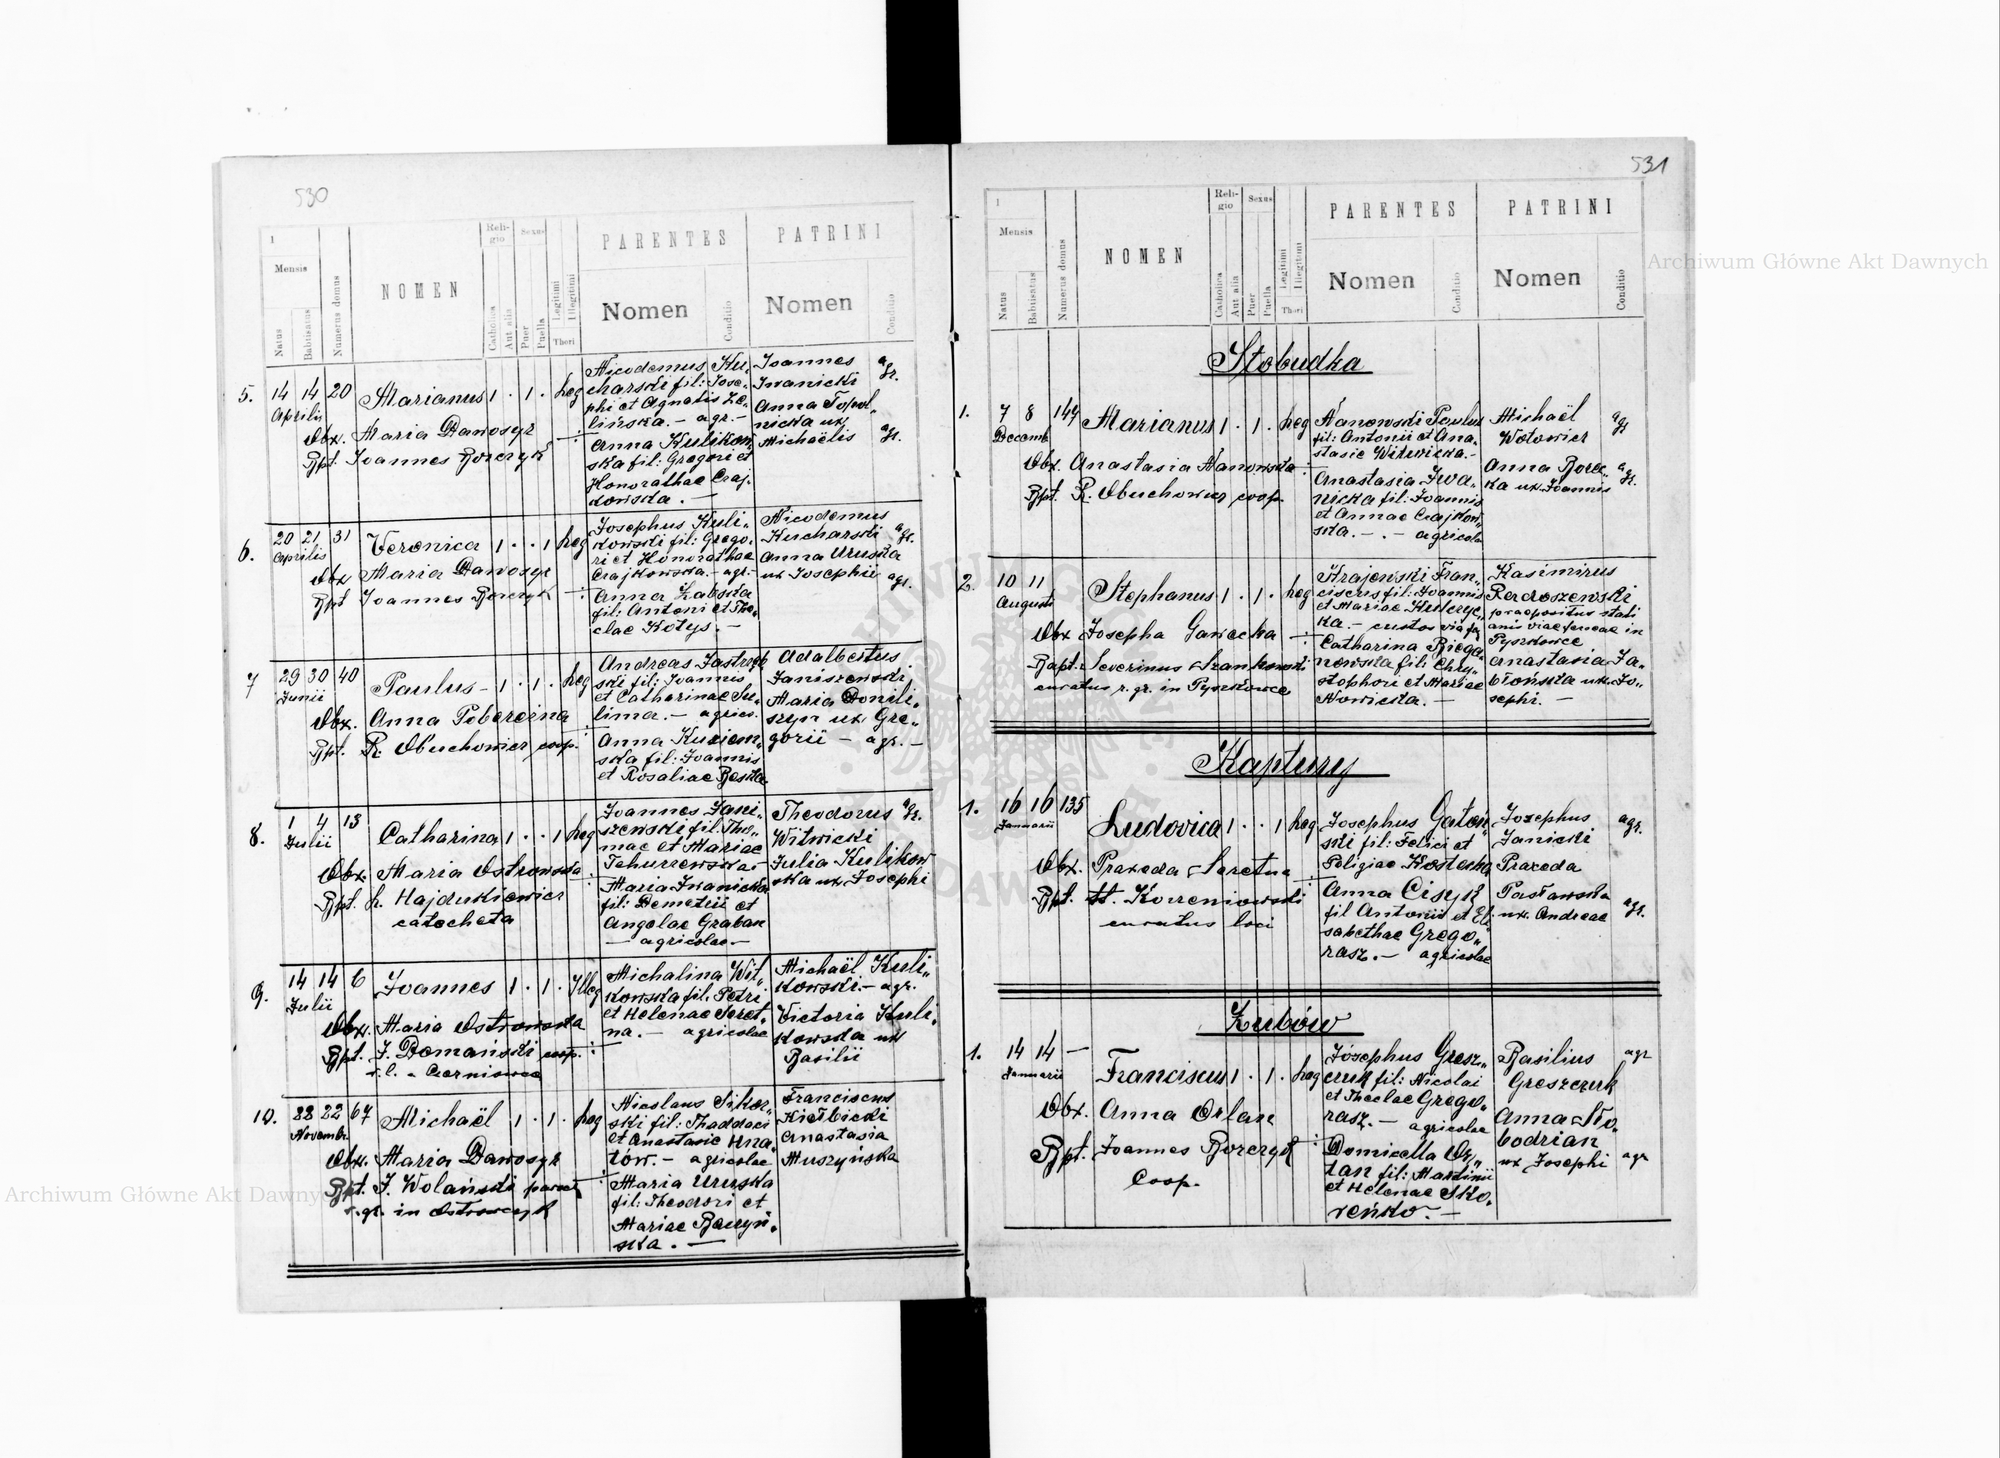 530
1
Mensis
Natus
Babtisatus
Numerus domus
NOMEN
Reli-
gio
Catholica
Aut alia
Sexus
Puer
Puella
Legitimi
Illegitimi
Thori
PARENTES
Nomen
Conditio
PATRINI
Nomen
Conditio
5. 14 14 20 Marianus 1 . 1 . Leg
Aprilis
Obx. Maria Dawosyr
Bpt. Joannes Borczyk
Nicodemus Ku„
charski fil: Jose„
phi et Agnatis Ze„
lińska. — agr. —
Anna Kulikow„
ska fil: Gregorii et
Honorathae Czaj„
kowska. —
Joannes
Iwanicki
Anna Topol„
nicka ux.
Michaëlis
agr.
agr.
6. 20 21 31 Veronica 1 . . 1 Leg
Aprilis
Obx Maria Dawosyr
Bpt Joannes Borczyk
Josephus Kuli„
kowski fil: Grego„
ri et Honorathae
Czajkowska. - agr. -
Anna Zabska
fil: Antoni et The„
clae Kotys. —
Nicodemus
Kucharski
Anna Uruska
ux Josephii
agr.
agr.
7 29 30 40 Paulus - 1 . 1 . Leg
Junii
Obx. Anna Poberezna
Bpt. R. Obuchowicz coop.
Andreas Jastrzęb
ski fil: Joannis
et Catharinae Su„
lima. — agrico.
Anna Kuziem„
ska fil: Joannis
et Rosaliae Beska
Adalbertus
Janiszewski
Maria Danili„
szyn ux. Gre„
gorii — agr. —
8. 1 4 13 Catharina 1 . . 1 Leg
Julii
Obx. Maria Ostrowska
Bpt. L. Hajdukiewicz
catecheta
Joannes Jani„
szewski fil. Tho„
mae et Mariae
Jahurzewska -
Maria Iwanicka
fil: Demetrii et
Angelae Graban
— agricolae —
Theodorus
Witwicki
Julia Kulikow
ska ux. Josephi
agr.
9. 14 14 6 Joannes 1 . 1 . Illeg
Julii
Obx. Maria Ostrowska
Bpt. J. Domański coop.
r. l. - Czerniowce
Michalina Wit„
kowska fil. Petri
et Helenae Seret„
na. — agricolae
Michaël Kuli„
kowski. — agr.
Victoria Kuli„
kowska ux
Basilii
10. 22 22 67 Michaël 1 . 1 . Leg
Novembr.
Obx. Maria Dawosyr
Bpt. J. Wolański paroch
r. gr. in Ostrowczyk
Nicolaus Sikor„
ski fil: Thaddaei
et Anastasie Hna„
tów. — agricolae
Maria Uruska
fil: Theodori et
Mariae Baczyń„
ska. —
Franciscus
Kiełbicki
Anastasia
Muszyńska
531
1
Mensis
Natus
Babtisatus
Numerus domus
NOMEN
Reli-
gio
Catholica
Aut alia
Sexus
Puer
Puella
Legitimi
Illegitimi
Thori
PARENTES
Nomen
Conditio
PATRINI
Nomen
Conditio
Słobudka
1. 7 8 144 Marianus 1 . 1 . Leg
Decemb
Obx. Anastasia Łanowska
Bpt. R. Obuchowicz coop.
Łanowski Paulus
fil: Antonii et Ana„
stasie Witwicka. -
Anastasia Iwa„
nicka fil: Joannis
et Annae Czajkow„
ska. — . — agricola
Michaël
Wołowicz
Anna Borec„
ka ux. Joannis
agr
agr.
2. 10 11 Stephanus 1 . 1 . Leg
Augusti
Obx Josepha Gawecka
Bapt. Severinus Szankowski
curatus r. gr. in Pyszkowce
Krajewski Fran„
ciscus fil: Joannis
et Mariae Kuderyc„
ka. — custos via fer
Catharina Biega„
nowska fil: Chry„
stophori et Mariae
Nowicka. —
Kasimirus
Perdoszewski
praepositus stati
onis viae ferreae in
Pyszkowce
Anastasia Ja„
błońska ux. Jo„
sephi. —
Kaptury
1. 16 16 135 Ludovica 1 . . 1 Leg
Januarii
Obx. Praxeda Seretna
Bpt. St. Korzeniowski
curatus loci
Josephus Gaton„
ski fil: Felici et
Peligiae Kostecka
Anna Cisyk
fil Antonii et Eli„
sabethae Grego„
rasz. — agricolae
Josephus
Janicki
Praxeda
Pasławska
ux. Andreae
agr.
agr.
Zubów
1. 14 14 — Franciscus 1 . 1 . Leg
Januarii
Obx. Anna Orlan
Bpt. Joannes Borczyk
Coop.
Josephus Gresz„
czuk fil: Nicolai
et Theclae Grego„
rasz. — agricolae
Domicella Or„
lan fil: Martini
et Helenae Sko„
reńko. —
Basilius
Greszczuk
Anna Sło„
bodrian
ux Josephi
agr
agr
Archiwum Główne Akt Dawnych
Archiwum Główne Akt Dawnych